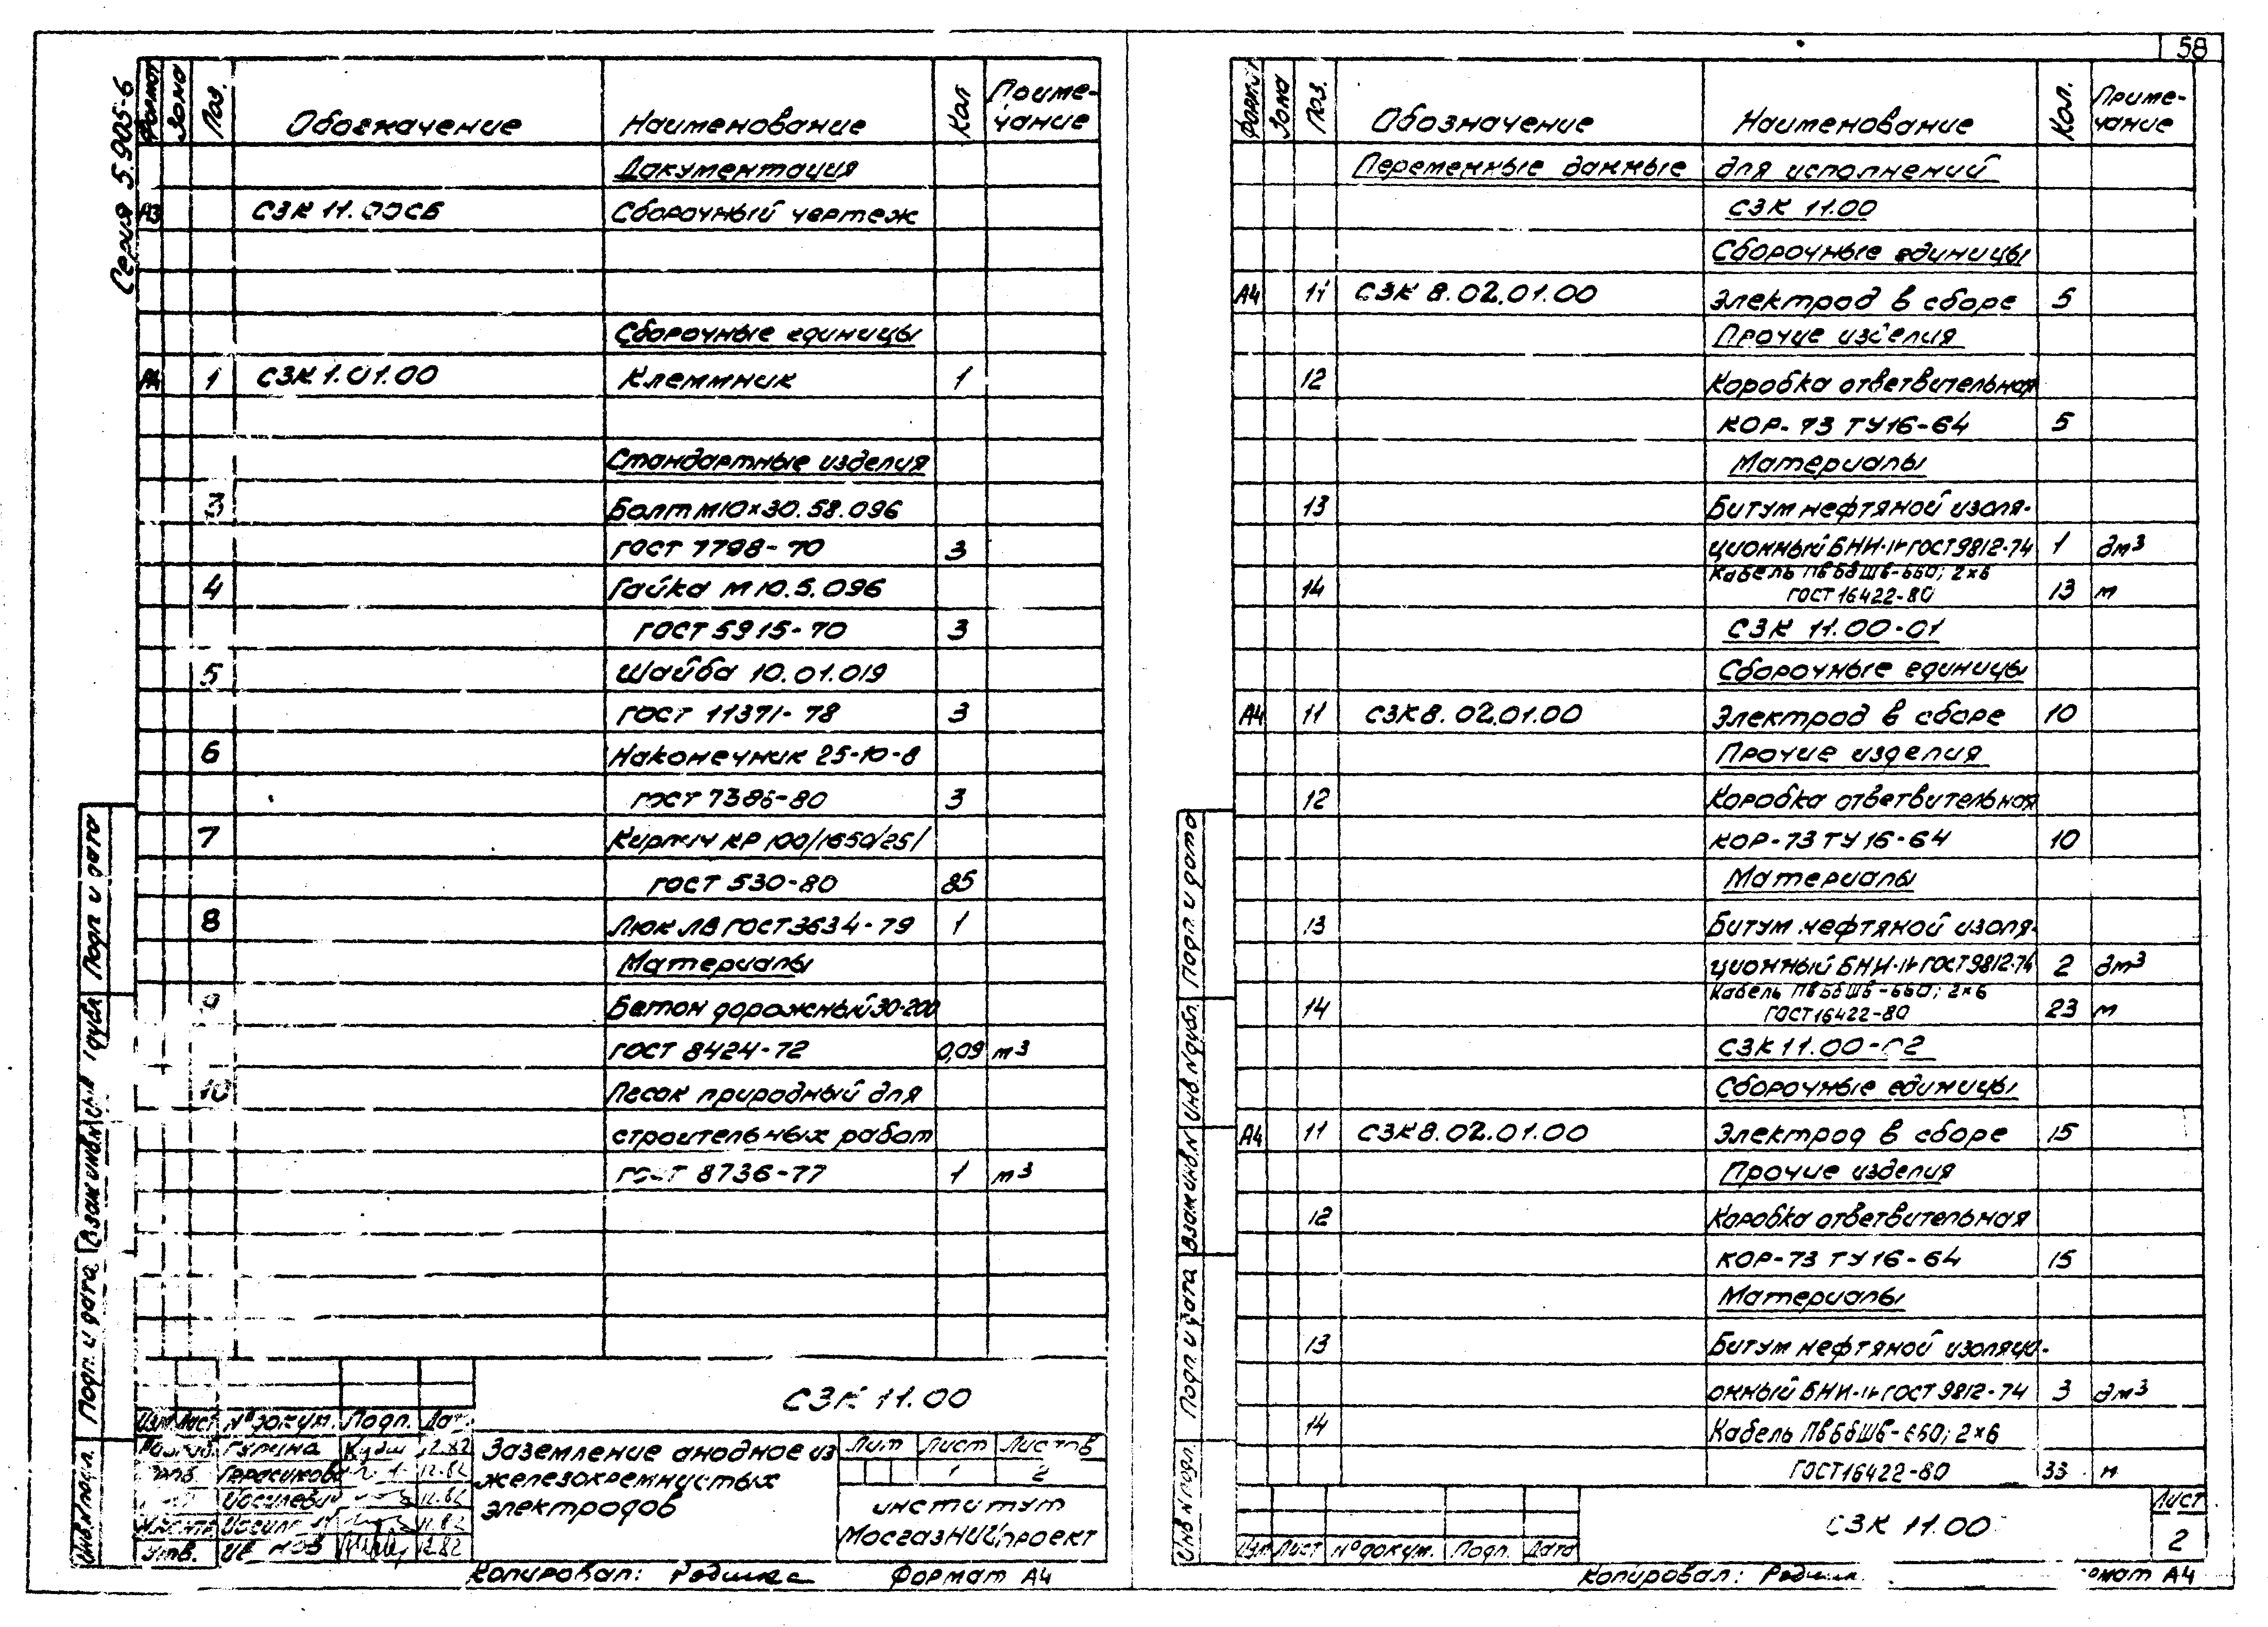 58
Серия 5.905-6
Формат Зона Поз. Обозначение Наименование Кол Приме-
чание
Документация
А3 СЗК 11.00СБ Сборочный чертеж
Сборочные единицы
А4 1 СЗК 1.01.00 Клеммник 1
Стандартные изделия
3 Болт М10×30.58.096
ГОСТ 7798-70 3
4 Гайка М10.5.096
ГОСТ 5915-70 3
5 Шайба 10.01.019
ГОСТ 11371-78 3
6 Наконечник 25-10-8
ГОСТ 7386-80 3
7 Кирпич КР 100/1650/25/
ГОСТ 530-80 85
8 Люк ЛВ ГОСТ 3634-79 1
Материалы
9 Бетон дорожный 30-200
ГОСТ 8424-72 0,09 м³
10 Песок природный для
строительных работ
ГОСТ 8736-77 1 м³
СЗК 11.00
Изм Лист № докум. Подп. Дат
Разраб. Гулина 12.82
Герасимова 12.82
Иосилевич 12.82
12.82
Утв. 12.82
Заземление анодное из
железокремнистых
электродов
Лит Лист Листов
1 2
институт
МосгазНИИпроект
Копировал: Родина Формат А4
Инв.№подл. Подп. и дата Взам инв.№ Подп и дата
Формат Зона Поз. Обозначение Наименование Кол. Приме-
чание
Переменные данные для исполнений
СЗК 11.00
Сборочные единицы
А4 11 СЗК 8.02.01.00 Электрод в сборе 5
Прочие изделия
12 Коробка ответвительная
КОР-73 ТУ16-64 5
Материалы
13 Битум нефтяной изоля-
ционный БНИ-IV ГОСТ 9812-74 1 дм³
14 Кабель ПвБбШв-660; 2×6
ГОСТ 16422-80 13 м
СЗК 11.00-01
Сборочные единицы
А4 11 СЗК 8.02.01.00 Электрод в сборе 10
Прочие изделия
12 Коробка ответвительная
КОР-73 ТУ 16-64 10
Материалы
13 Битум нефтяной изоля-
ционный БНИ-IV ГОСТ 9812-74 2 дм³
14 Кабель ПвБбШв-660; 2×6
ГОСТ 16422-80 23 м
СЗК 11.00-02
Сборочные единицы
А4 11 СЗК 8.02.01.00 Электрод в сборе 15
Прочие изделия
12 Коробка ответвительная
КОР-73 ТУ 16-64 15
Материалы
13 Битум нефтяной изоляци-
онный БНИ-IV ГОСТ 9812-74 3 дм³
14 Кабель ПвБбШв-660; 2×6
ГОСТ 16422-80 33 м
Изм Лист № докум. Подп. Дата
СЗК 11.00
Лист
2
Копировал: А4
Инв.№подл. Подп. и дата Взам инв.№ Инв.№дубл. Подп. и дата